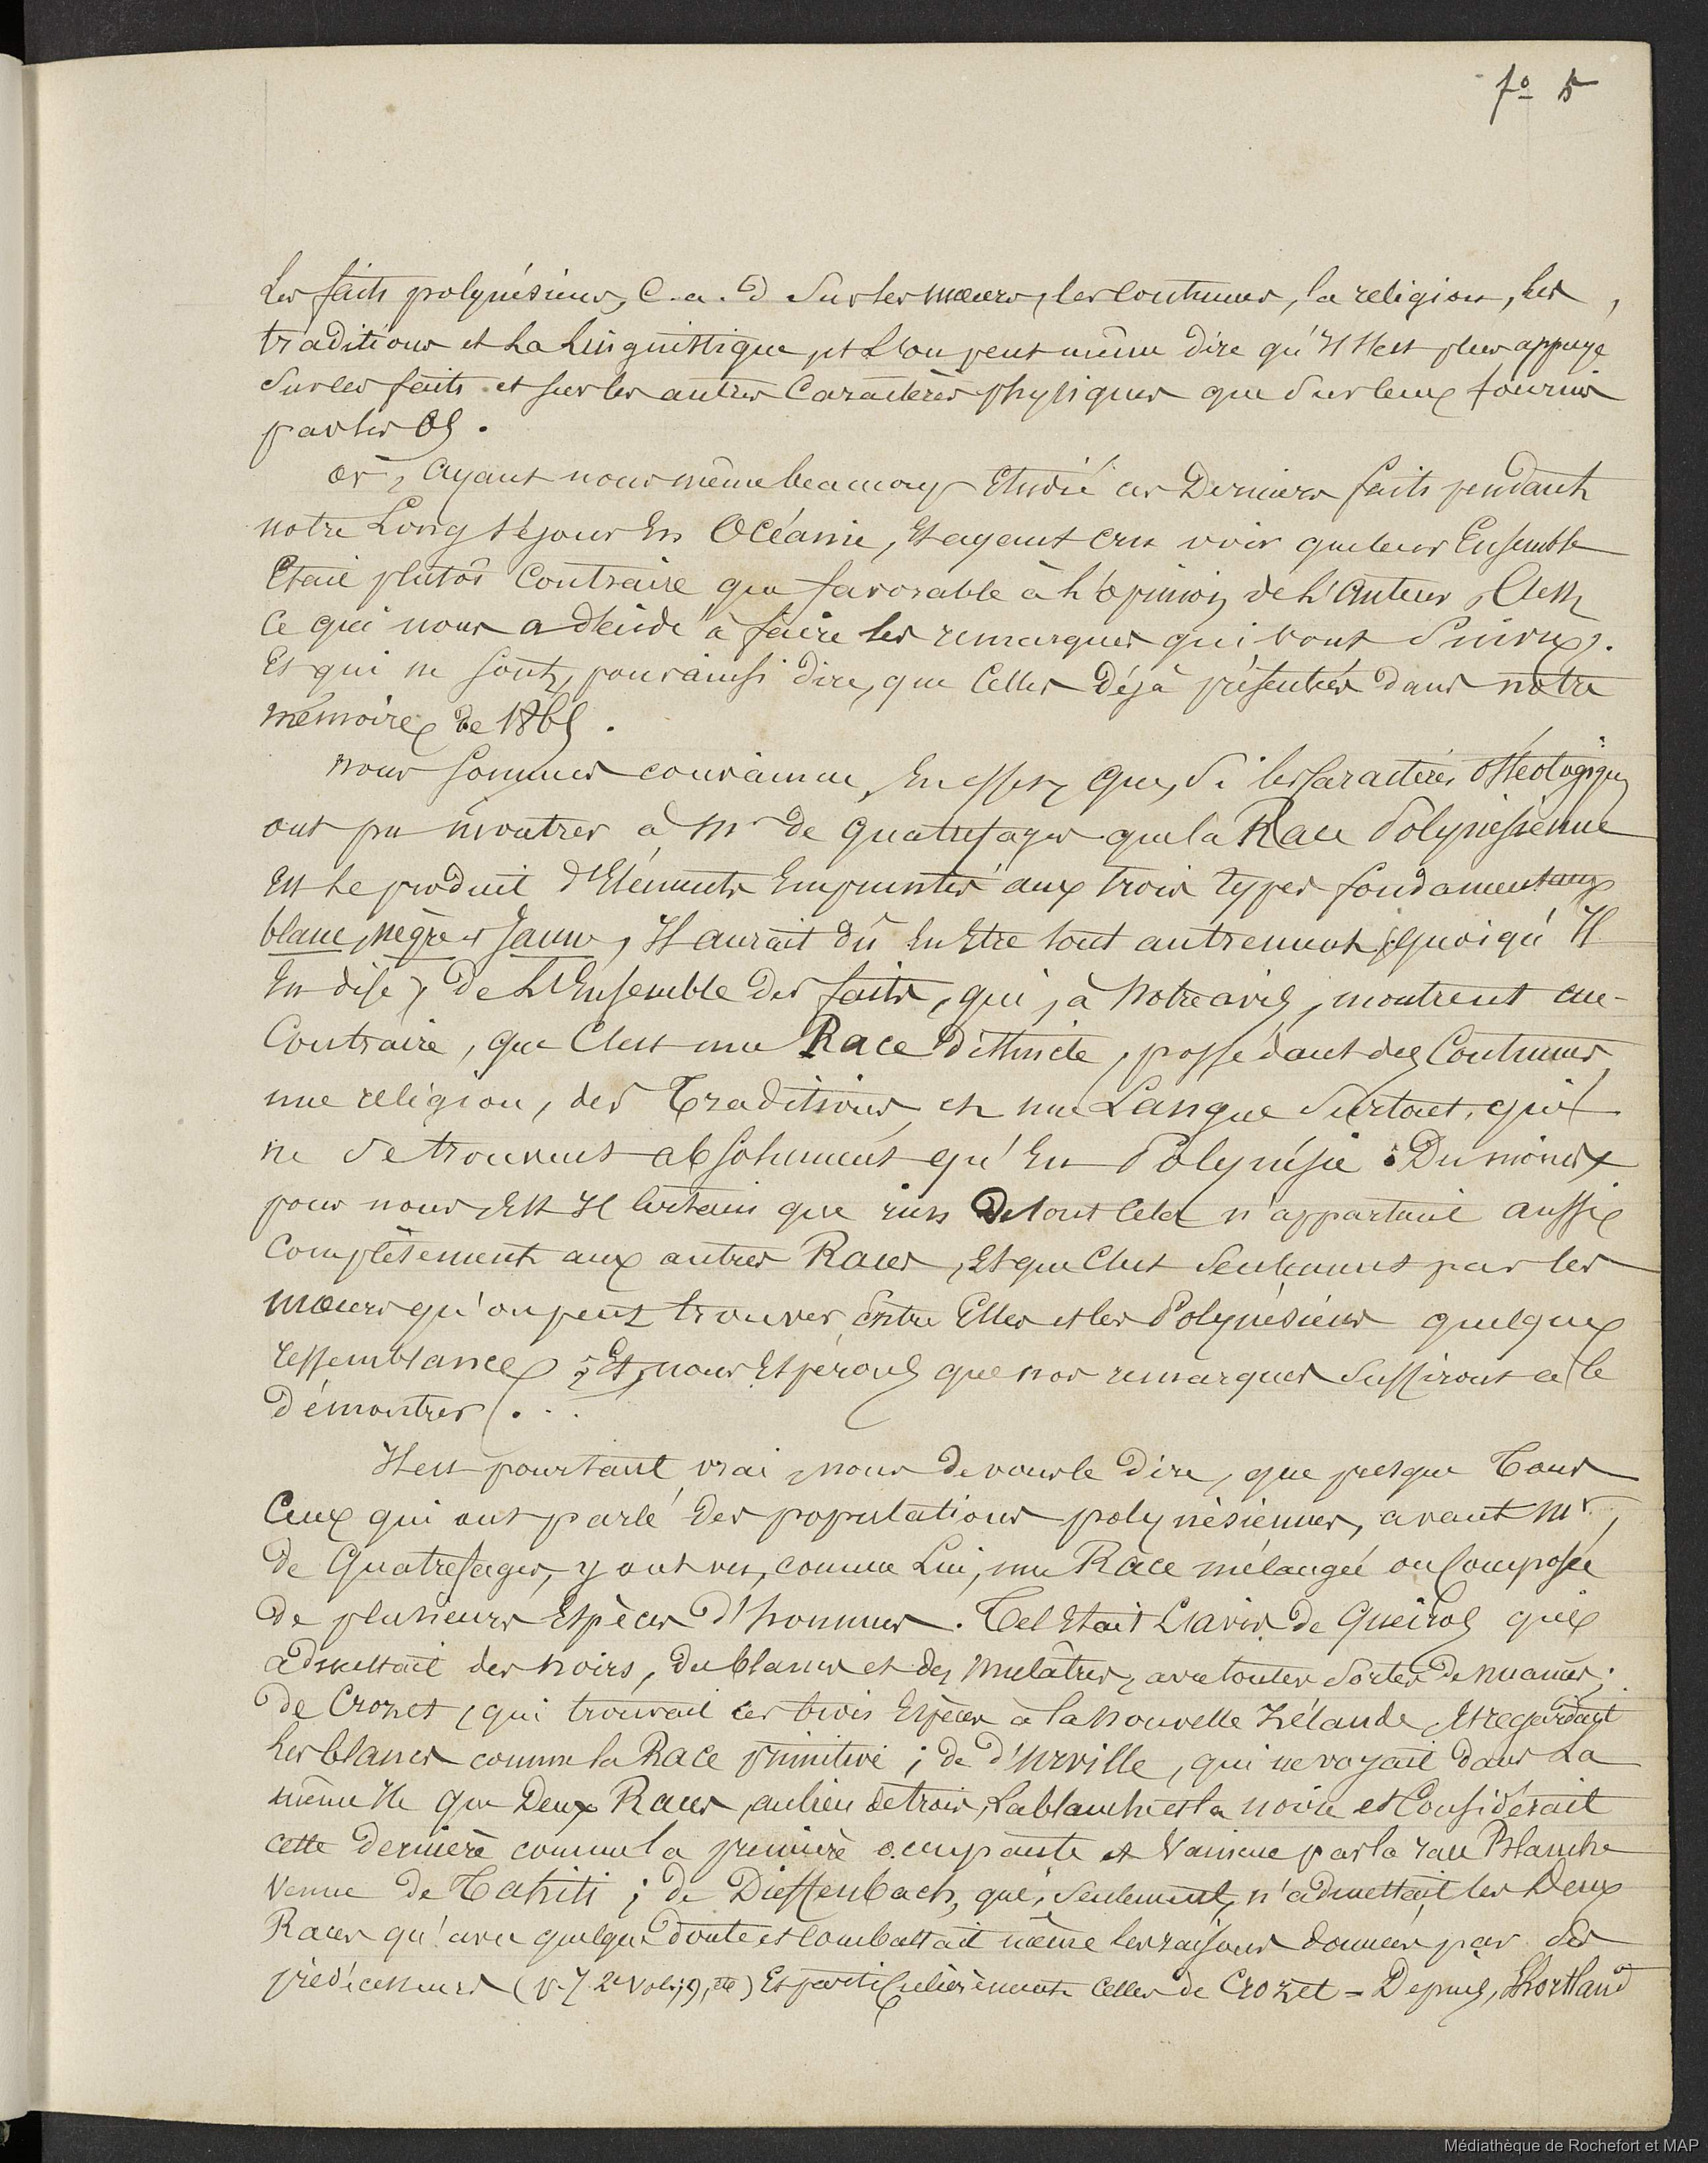 fo 5
Les faits polynésiens, C. a. d sur les mœurs, les coutumes, la religion, les
traditions et La Linguistique, et L'on peut même dire qu'Il s'est plus appuyé
Sur les faits et sur les autres Caractères physiques que sur ceux fournis
par les OS.
or, Ayant nous même beaucoup Etudié ces Derniers faits pendant
notre Long séjour En Océanie, Et ayant cru voir que leur Ensemble
Etait plutôt Contraire que favorable à L'opinion de L'Auteur, C'est
Ce qui nous a décidé à faire les remarques qui vont Suivre,
Et qui ne sont, pour ainsi dire, que Celles Déjà présentées dans notre
mémoire de 186
nous sommes convaincu, En effet, que, Si les Caractères Ostéologiques
ont pu montrer à Mr de Quatrefages que la Race Polynésienne
Est Le produit d'Eléments Empruntés aux trois types fondamentaux
blanc, nègre et Jaune, Il aurait dû En Etre tout autrement, quoiqu'Il
En dise, De L'Ensemble des faits, qui, à Notre avis, montrent au
Contraire, que C'est une Race distincte, possédant des Coutumes,
une religion, des Traditions et une Langue Surtout, qui
ne se trouvent absolument qu'En Polynésie. Du moins
pour nous, Est Il Certain que rien De tout Cela n'appartient aussi
Complètement aux autres Races, Et que C'est Seulement par les
Mœurs qu'on peut trouver, Entre Elles et les Polynésiens quelque
ressemblance. Et, nous Espérons que nos remarques Suffiront à le
démontrer...
Il est pourtant vrai, nous devons le Dire, que presque Tous
Ceux qui ont parlé des populations polynésiennes, avant Mr
de Quatrefages, y ont vu, comme Lui, une Race mélangée ou Composée
de plusieurs Espèces d'hommes. Tel Etait L'avis de Queiros qui
admettait des Noirs, des blancs et des Mulâtres, avec toutes Sortes De nuances;
de Crozet, qui trouvait ces trois Espèces à la Nouvelle Zélande, Et regardait
Les blancs comme la Race primitive; de d'Urville, qui ne voyait dans La
même Ile que Deux Races, au lieu de trois, La blanche et la noire et Considérait
cette dernière comme la première occupante et Vaincue par la race Blanche
Venue de Tahiti; de Dieffenbach, qui, seulement, n'admettait les Deux
Races qu'avec quelque doute et Combattait même les raisons données par ses
prédécesseurs (V. 2e Vol: , 9, etc) Et particulièrement Celles de Crozet = Depuis, Shortland
Médiathèque de Rochefort et MAP